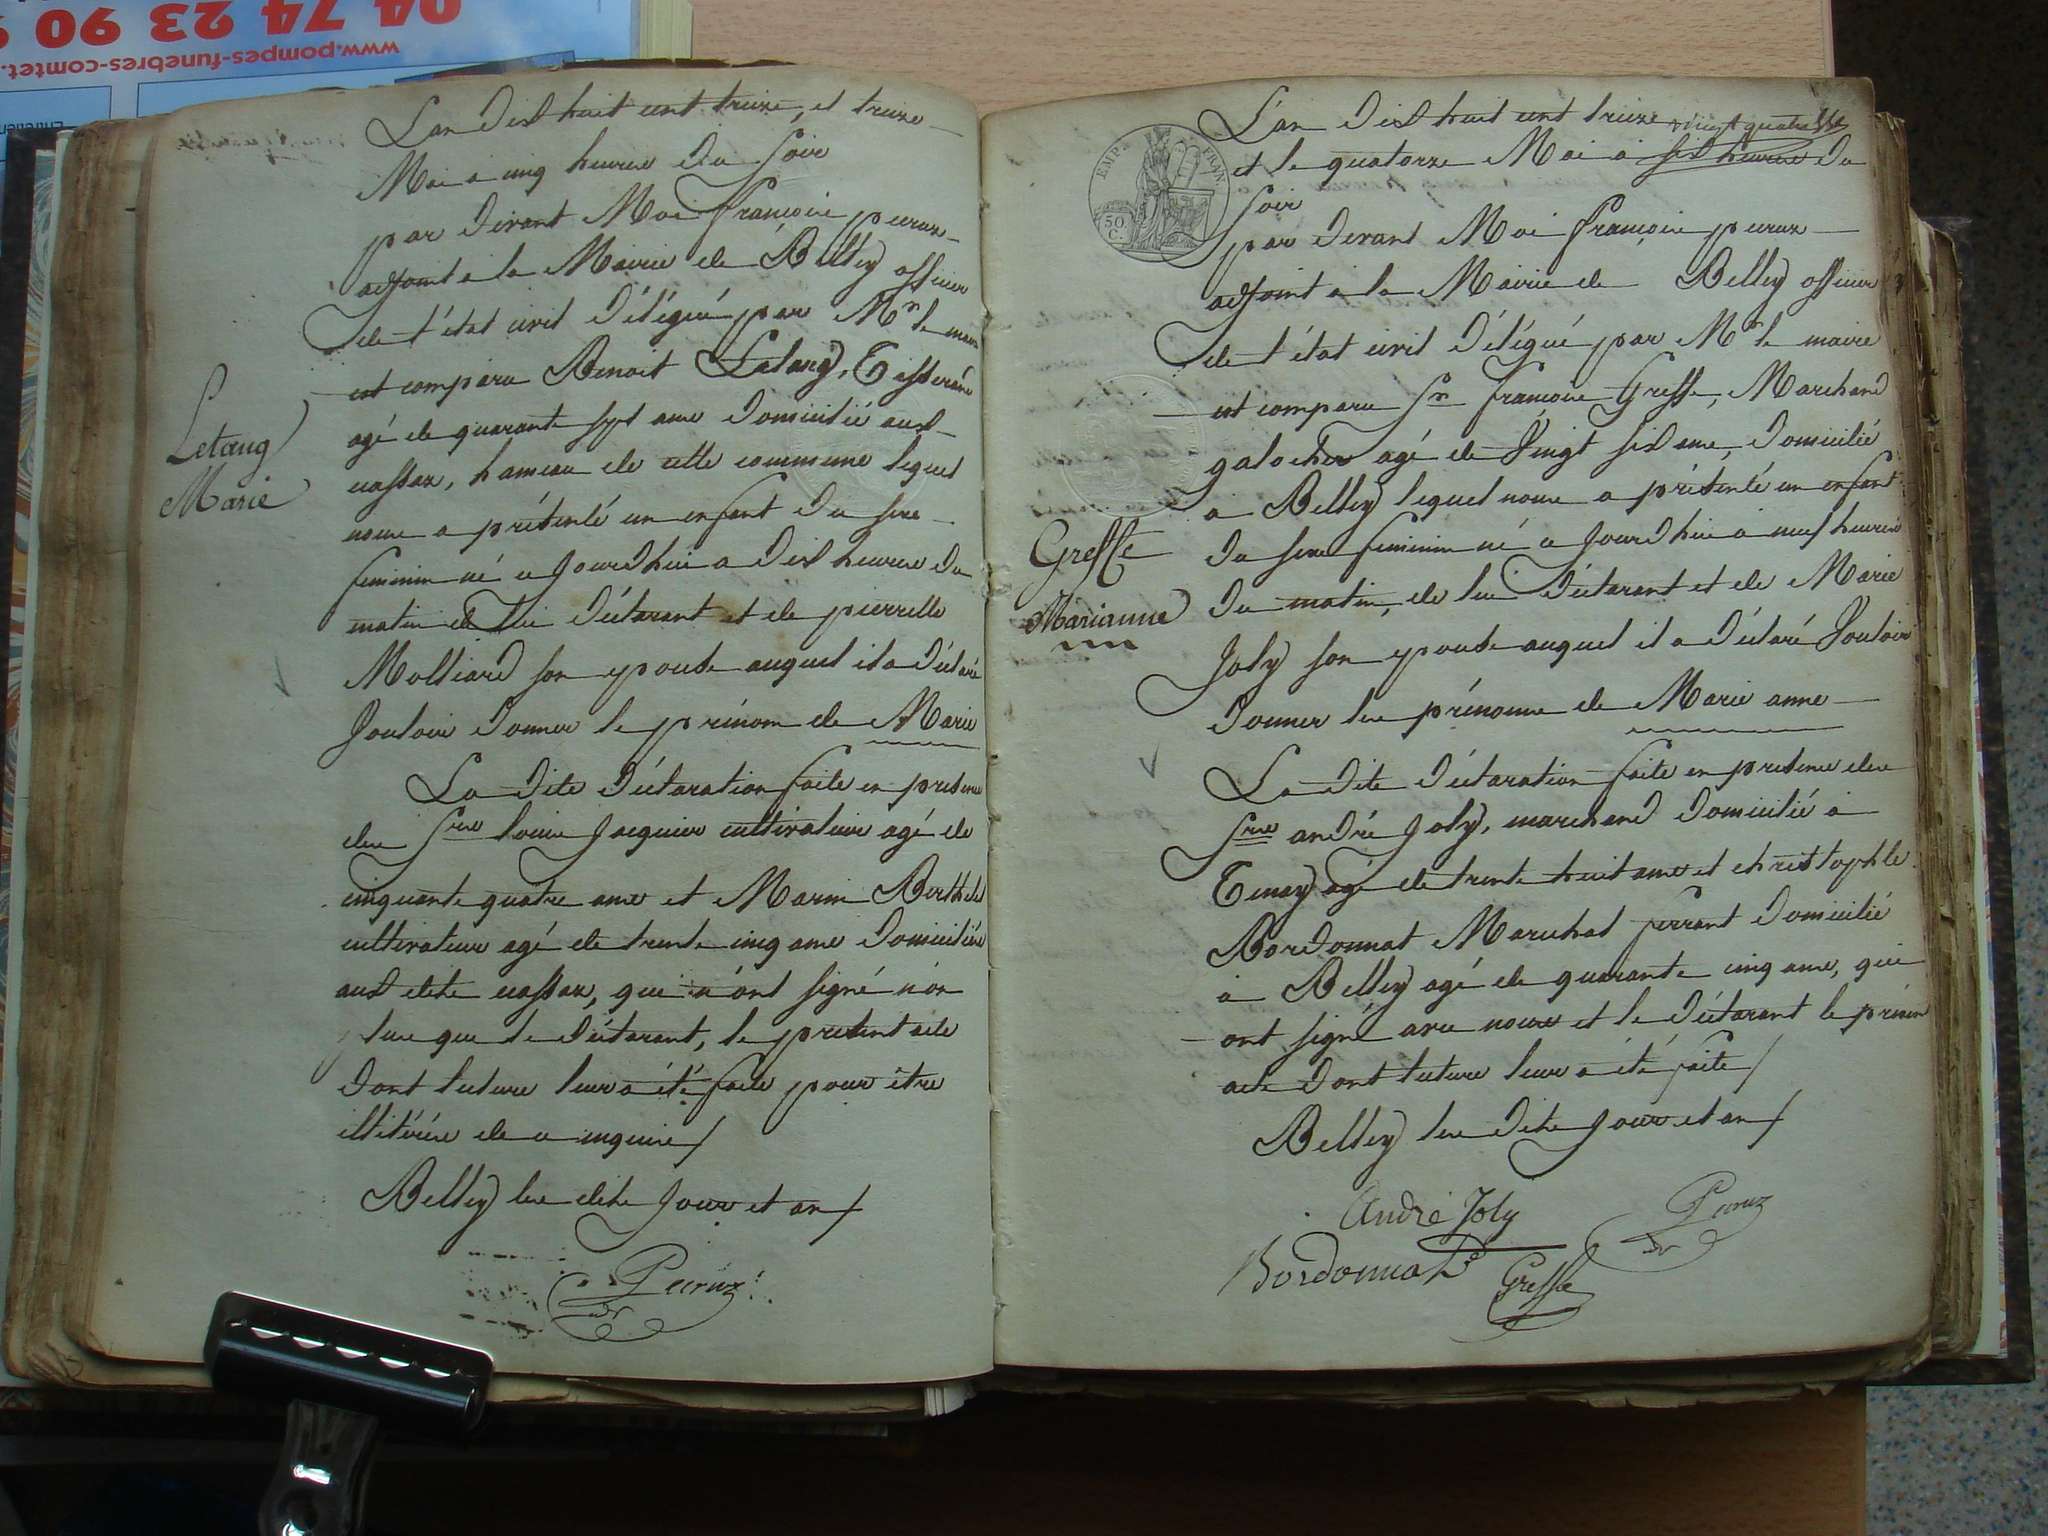 04 74 23 90
www.pompes-funebres-comtet.
L'an dix huit cent treize, et treize
Mai a cinq heures du soir
par devant Moi françois peeruz
adjoint a la Mairie de Belley officier
de l'état civil délégué par Mr le maire
est comparu Benoit Letang, Tisserand
agé de quarante sept ans domicilié aux
ecassaz, hameau de cette commune lequel
nous a présenté un enfant du sexe
feminin né ce jourd'hui a dix heures du
matin de lui déclarant et de pierrette
Molliard son epouse auquel il a déclaré
Vouloir donner le prénom de Marie
Letang
Marie
La dite déclaration faite en presence
des Srs louis Jacquier cultivateur agé de
cinquante quatre ans et Marin Berthelet
cultivateur agé de trente cinq ans domiciliés
aux dits ecassaz, qui n'ont signé non
plus que le déclarant, le present acte
dont lecture leur a été faite pour être
illitérés de ce enquis/
Belley les dits jour et an/
Peeruz
EMP. FRAN.
50 C.
L'an dix huit cent treize
et le quatorze Mai a six heures du
soir
par devant Moi françois peeruz
adjoint a la Mairie de Belley officier
de l'état civil délégué par Mr le maire
est comparu Sr françois Gresse, Marchand
galocher agé de Vingt six ans, domicilié
a Belley lequel nous a présenté un enfant
du sexe feminin né ce jourd'hui a neuf heures
du matin, de lui déclarant et de Marie
Joly son epouse auquel il a déclaré Vouloir
donner les prénoms de Marie anne
Gresse
Marianne
La dite déclaration faite en presence des
Srs andré Joly, marchand domicilié a
Tenay agé de trente huit ans et christophle
Bordonnat Marechal ferrant domicilié
a Belley agé de quarante cinq ans, qui
ont signé avec nous et le déclarant le présen
acte dont lecture leur a été faite/
Belley les dits jour et an/
André Joly
Peeruz
Bordonnat
Gresse